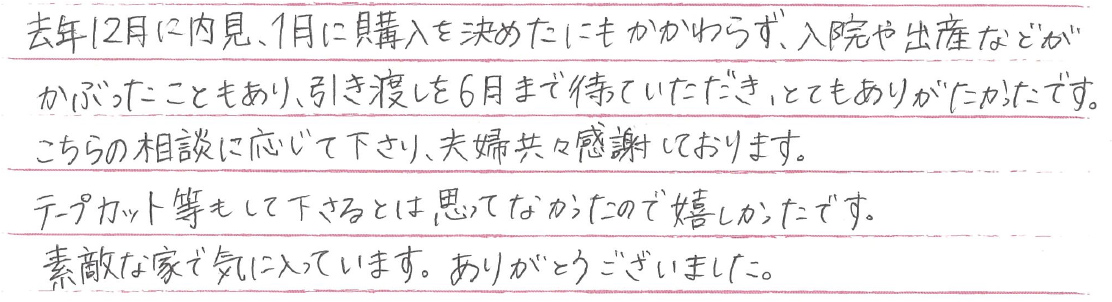 去年12月に内見、1月に購入を決めたにもかかわらず、入院や出産などが
かぶったこともあり、引き渡しを6月まで待っていただき、とてもありがたかったです。
こちらの相談に応じて下さり、夫婦共々感謝しております。
テープカット等もして下さるとは思ってなかったので嬉しかったです。
素敵な家で気に入っています。ありがとうございました。